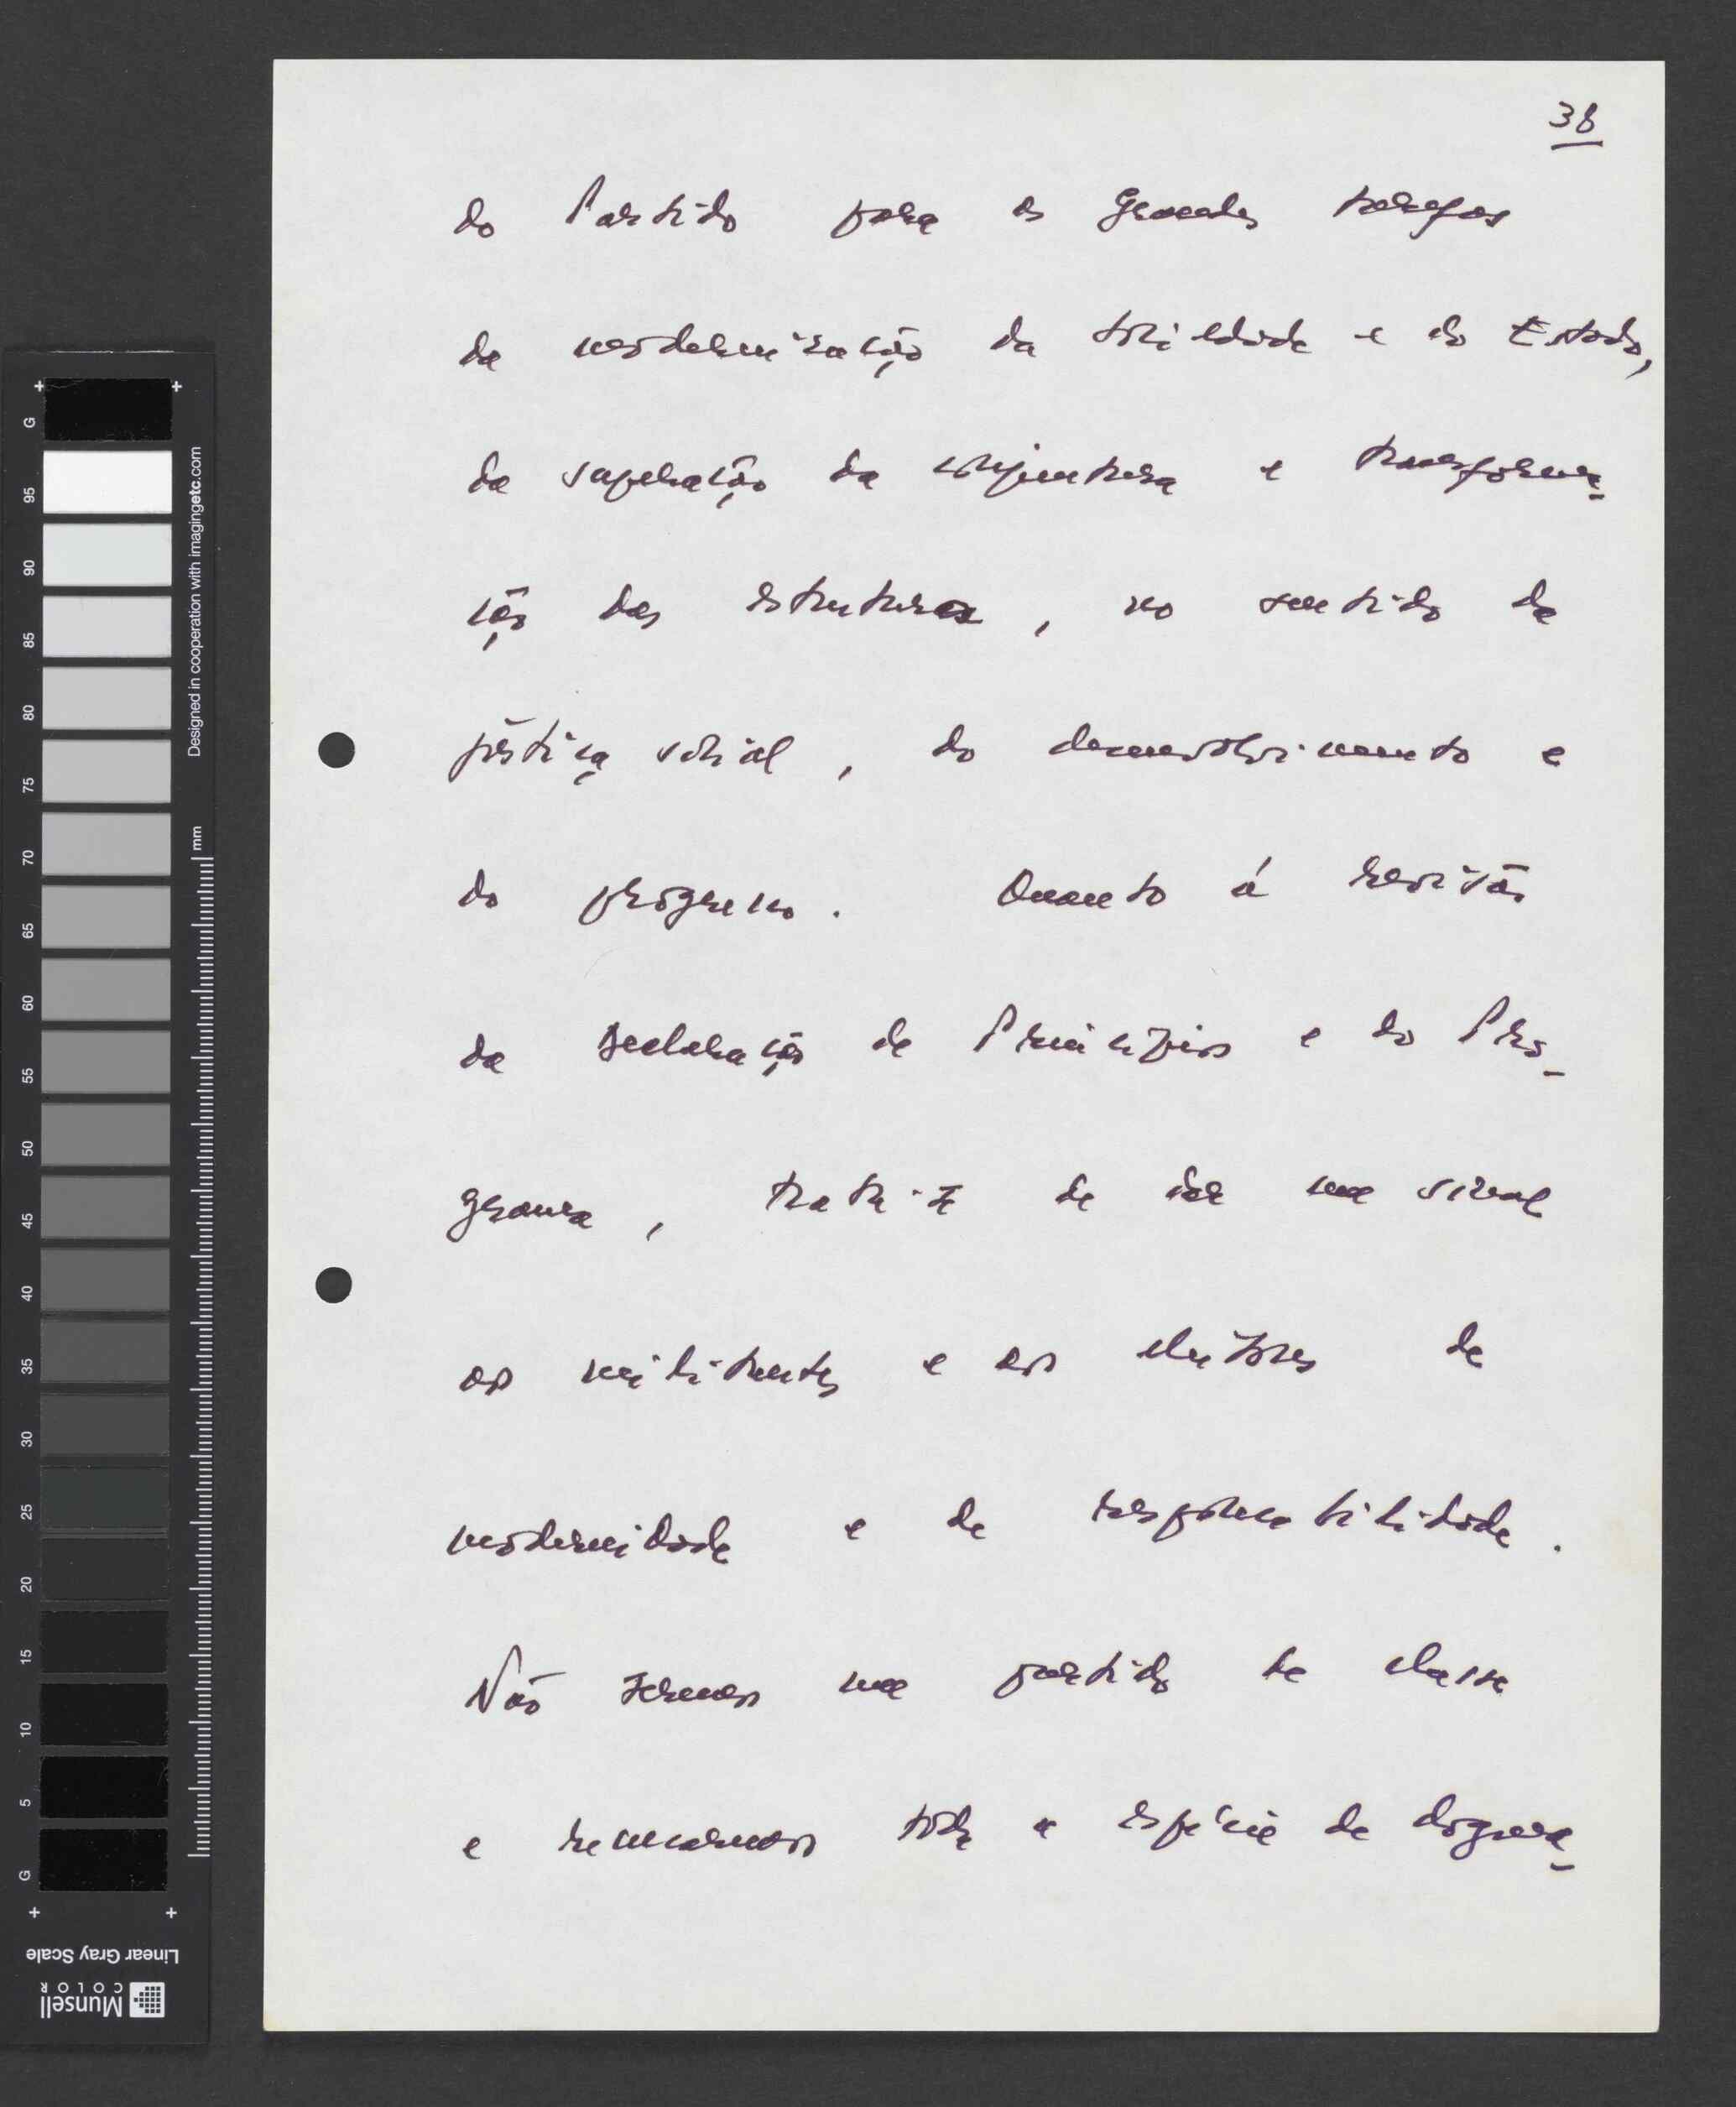 38
do Partido para as grandes tarefas
da modernização da sociedade e do Estado,
da superação da conjuntura e transforma-
ção das estruturas, no sentido da
justiça social, do desenvolvimento e
do progresso. Quanto á revisão
da Declaração de Princípios e do Pro-
grama, trata-se de dar um sinal
aos militantes e aos eleitores de
modernidade e de responsabilidade.
Não seremos um partido de classe
e recusaremos toda a espécie de dogma-
Designed in cooperation with imagingetc.com
mm
G
95
90
85
80
75
70
65
60
55
50
45
40
35
30
25
20
15
10
5
G
Linear Gray Scale
Munsell
COLOR